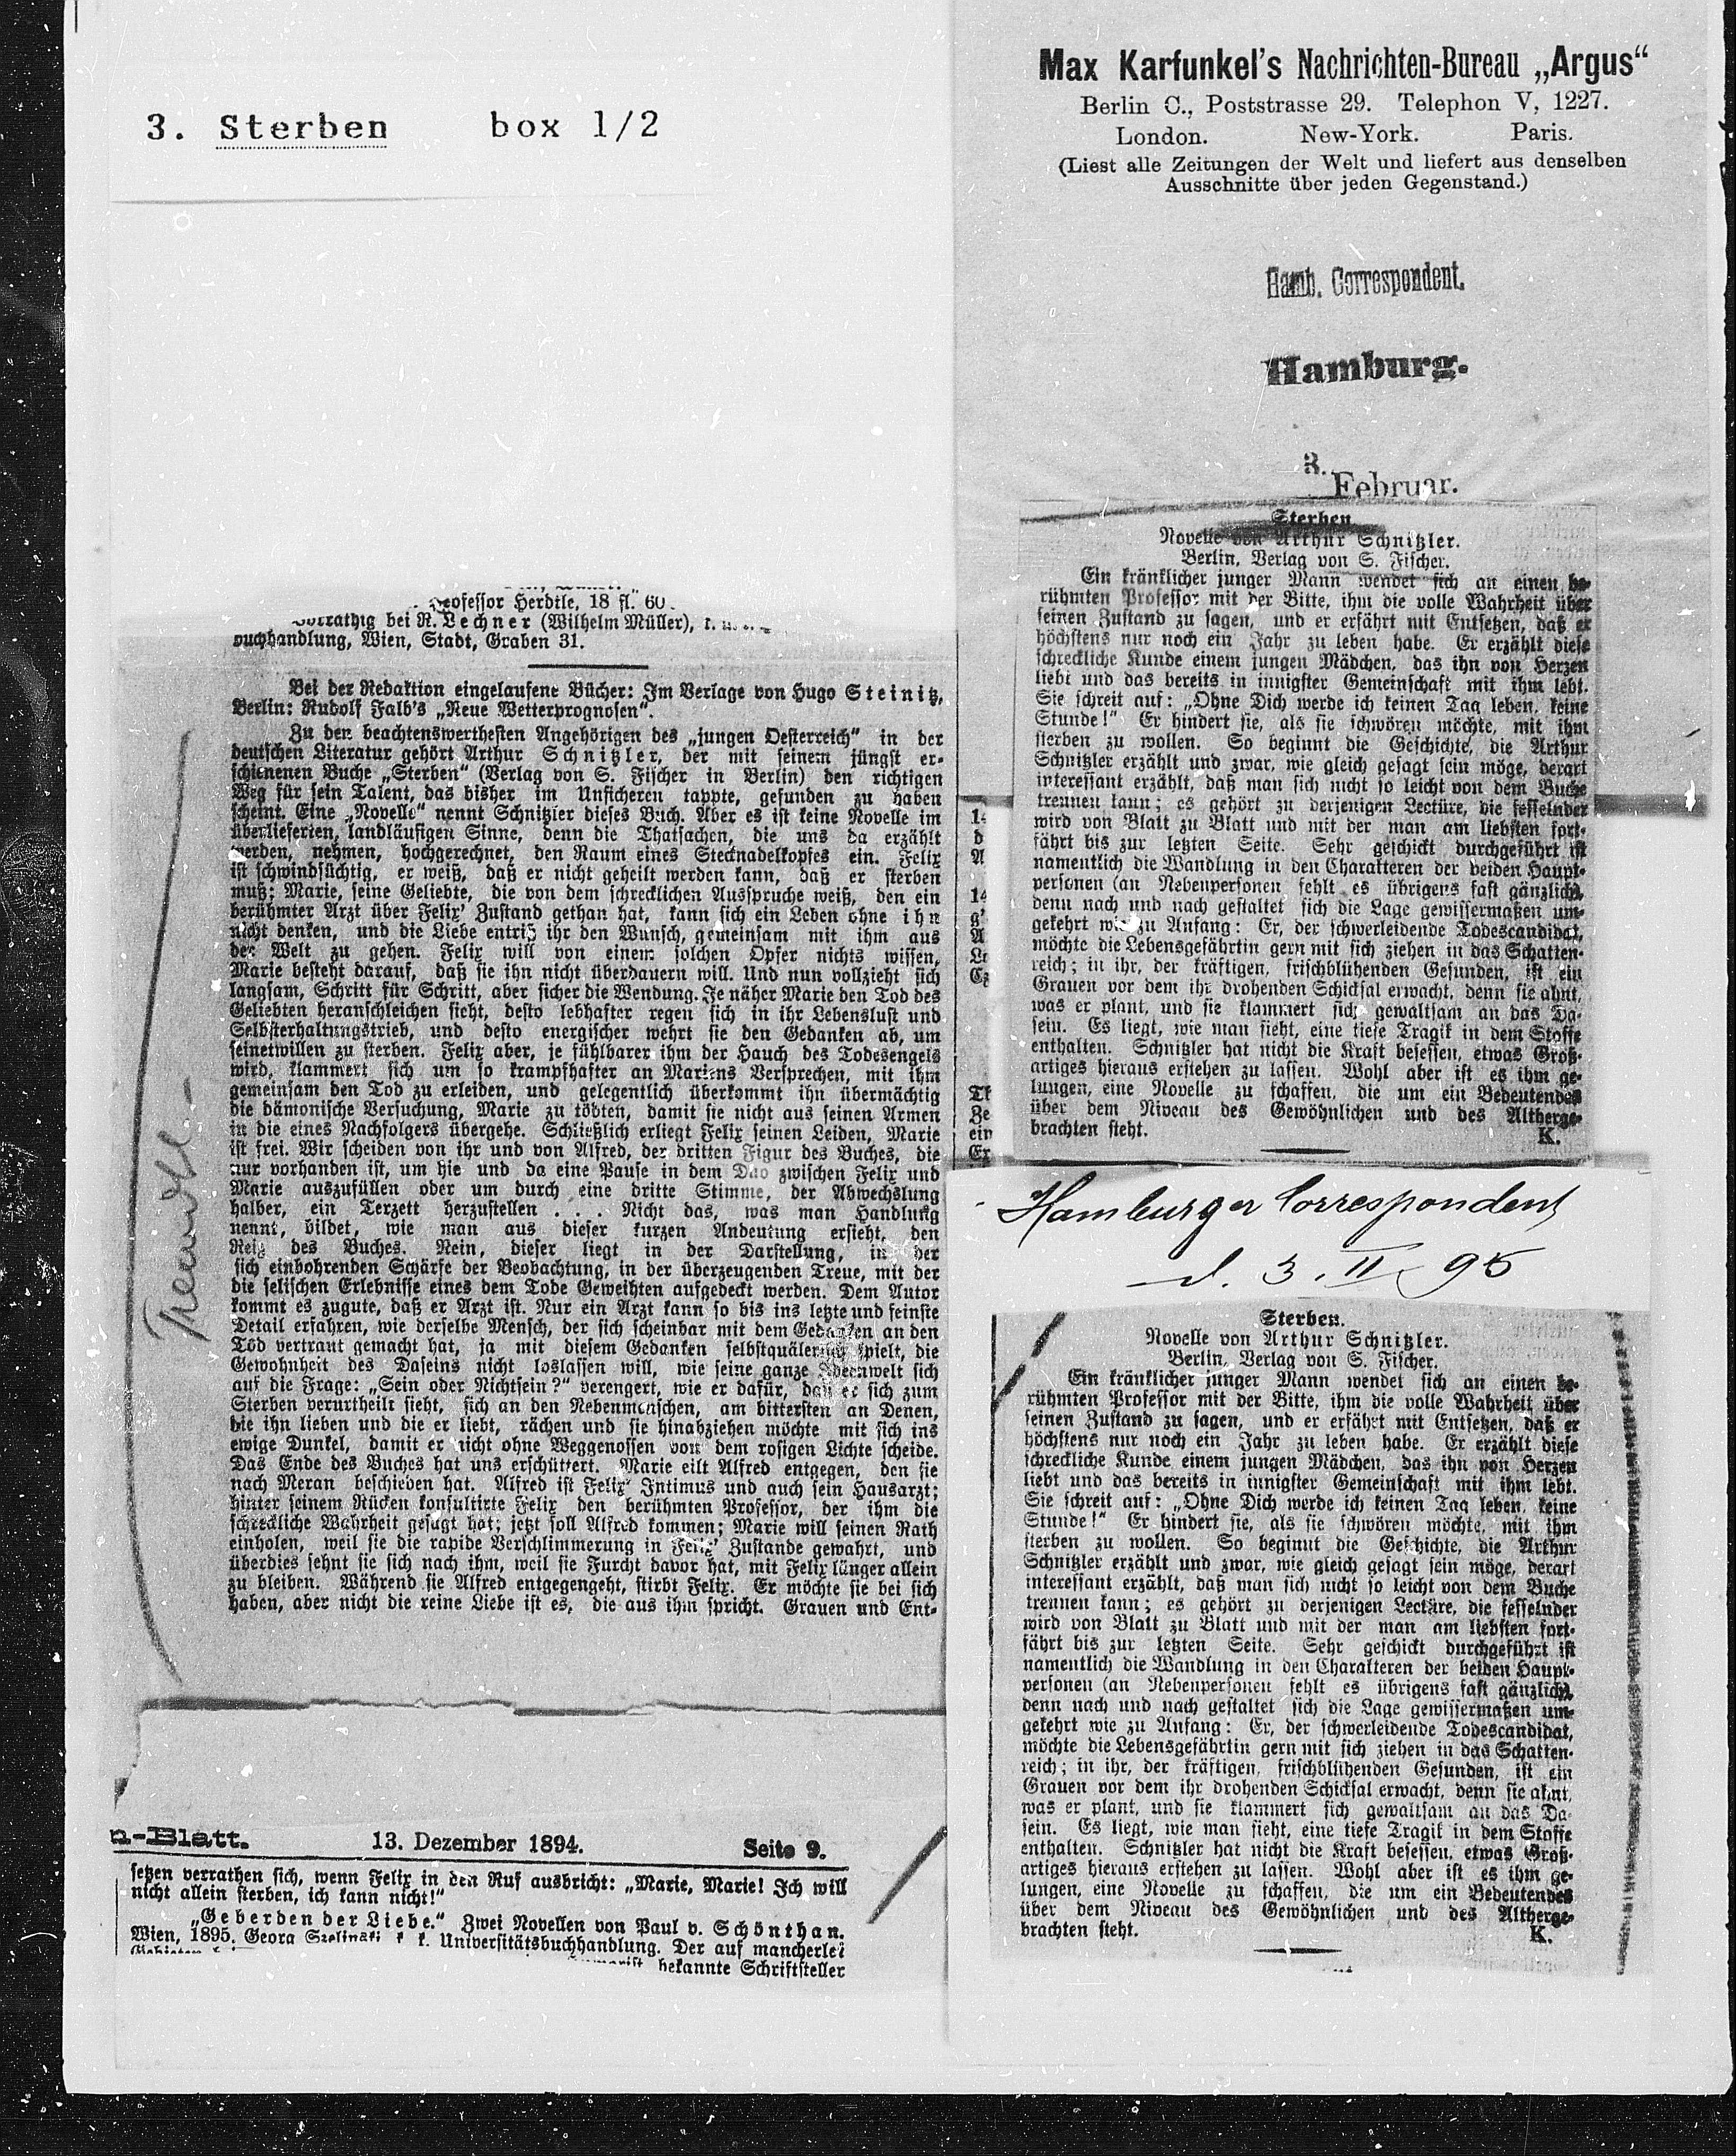 3. Sterben box 1/2
Professor Herdtle, 18 fl. 60
Vorräthig bei R. Lechner (Wilhelm Müller), k. u. k.
buchhandlung, Wien, Stadt, Graben 31.
Bei der Redaktion eingelaufene Bücher: Im Verlage von Hugo Steinitz,
Berlin: Rudolf Falb's „Neue Wetterprognosen“.
Zu den beachtenswerthesten Angehörigen des „jungen Oesterreich“ in der
deutschen Literatur gehört Arthur Schnitzler, der mit seinem jüngst er-
schienenen Buche „Sterben“ (Verlag von S. Fischer in Berlin) den richtigen
Weg für sein Talent, das bisher im Unsicheren tappte, gefunden zu haben
scheint. Eine „Novelle“ nennt Schnitzler dieses Buch. Aber es ist keine Novelle im
überlieferten, landläufigen Sinne, denn die Thatsachen, die uns da erzählt
werden, nehmen, hochgerechnet, den Raum eines Stecknadelkopfes ein. Felix
ist schwindsüchtig, er weiß, daß er nicht geheilt werden kann, daß er sterben
muß; Marie, seine Geliebte, die von dem schrecklichen Ausspruche weiß, den ein
berühmter Arzt über Felix' Zustand gethan hat, kann sich ein Leben ohne ihn
nicht denken, und die Liebe entriß ihr den Wunsch, gemeinsam mit ihm aus
der Welt zu gehen. Felix will von einem solchen Opfer nichts wissen,
Marie besteht darauf, daß sie ihn nicht überdauern will. Und nun vollzieht sich
langsam, Schritt für Schritt, aber sicher die Wendung. Je näher Marie den Tod des
Geliebten heranschleichen sieht, desto lebhafter regen sich in ihr Lebenslust und
Selbsterhaltungstrieb, und desto energischer wehrt sie den Gedanken ab, um
seinetwillen zu sterben. Felix aber, je fühlbarer ihm der Hauch des Todesengels
wird, klammert sich um so krampfhafter an Mariens Versprechen, mit ihm
gemeinsam den Tod zu erleiden, und gelegentlich überkommt ihn übermächtig
die dämonische Versuchung, Marie zu tödten, damit sie nicht aus seinen Armen
in die eines Nachfolgers übergehe. Schließlich erliegt Felix seinen Leiden, Marie
ist frei. Wir scheiden von ihr und von Alfred, der dritten Figur des Buches, die
nur vorhanden ist, um hie und da eine Pause in dem Duo zwischen Felix und
Marie auszufüllen oder um durch eine dritte Stimme, der Abwechslung
halber, ein Terzett herzustellen . . . Nicht das, was man Handlung
nennt, bildet, wie man aus dieser kurzen Andeutung ersieht, den
Reiz des Buches. Nein, dieser liegt in der Darstellung, in der
sich einbohrenden Schärfe der Beobachtung, in der überzeugenden Treue, mit der
die selischen Erlebnisse eines dem Tode Geweihten aufgedeckt werden. Dem Autor
kommt es zugute, daß er Arzt ist. Nur ein Arzt kann so bis ins letzte und feinste
Detail erfahren, wie derselbe Mensch, der sich scheinbar mit dem Gedanken an den
Tod vertraut gemacht hat, ja mit diesem Gedanken selbstquälerisch spielt, die
Gewohnheit des Daseins nicht loslassen will, wie seine ganze Ideenwelt sich
auf die Frage: „Sein oder Nichtsein?“ verengert, wie er dafür, daß er sich zum
Sterben verurtheilt sieht, sich an den Nebenmenschen, am bittersten an Denen,
die ihn lieben und die er liebt, rächen und sie hinabziehen möchte mit sich ins
ewige Dunkel, damit er nicht ohne Weggenossen von dem rosigen Lichte scheide.
Das Ende des Buches hat uns erschüttert. Marie eilt Alfred entgegen, den sie
nach Meran beschieden hat. Alfred ist Felix' Intimus und auch sein Hausarzt;
hinter seinem Rücken konsultirte Felix den berühmten Professor, der ihm die
schreckliche Wahrheit gesagt hat; jetzt soll Alfred kommen; Marie will seinen Rath
einholen, weil sie die rapide Verschlimmerung in Felix' Zustande gewahrt, und
überdies sehnt sie sich nach ihm, weil sie Furcht davor hat, mit Felix länger allein
zu bleiben. Während sie Alfred entgegengeht, stirbt Felix. Er möchte sie bei sich
haben, aber nicht die reine Liebe ist es, die aus ihm spricht. Grauen und Ent-
n-Blatt. 13. Dezember 1894. Seite 9.
setzen verrathen sich, wenn Felix in den Ruf ausbricht: „Marie, Marie! Ich will
nicht allein sterben, ich kann nicht!“
„Geberden der Liebe.“ Zwei Novellen von Paul v. Schönthan.
Wien, 1895. Georg Szelinski k. k. Universitätsbuchhandlung. Der auf mancherlei
bekannte Schriftsteller
Max Karfunkel's Nachrichten-Bureau „Argus“
Berlin C., Poststrasse 29. Telephon V, 1227.
London. New-York. Paris.
(Liest alle Zeitungen der Welt und liefert aus denselben
Ausschnitte über jeden Gegenstand.)
Hamb. Correspondent.
Hamburg.
3.
Februar.
Sterben
Novelle von Arthur Schnitzler.
Berlin, Verlag von S. Fischer.
Ein kränklicher junger Mann wendet sich an einen be-
rühmten Professor mit der Bitte, ihm die volle Wahrheit über
seinen Zustand zu sagen, und er erfährt mit Entsetzen, daß er
höchstens nur noch ein Jahr zu leben habe. Er erzählt diese
schreckliche Kunde einem jungen Mädchen, das ihn von Herzen
liebt und das bereits in innigster Gemeinschaft mit ihm lebt.
Sie schreit auf: „Ohne Dich werde ich keinen Tag leben, keine
Stunde!“ Er hindert sie, als sie schwören möchte, mit ihm
sterben zu wollen. So beginnt die Geschichte, die Arthur
Schnitzler erzählt und zwar, wie gleich gesagt sein möge, derart
interessant erzählt, daß man sich nicht so leicht von dem Buche
trennen kann; es gehört zu derjenigen Lectüre, die fesselnder
wird von Blatt zu Blatt und mit der man am liebsten fort-
fährt bis zur letzten Seite. Sehr geschickt durchgeführt ist
namentlich die Wandlung in den Charakteren der beiden Haupt-
personen (an Nebenpersonen fehlt es übrigens fast gänzlich),
denn nach und nach gestaltet sich die Lage gewissermaßen um-
gekehrt wie zu Anfang: Er, der schwerleidende Todescandidat,
möchte die Lebensgefährtin gern mit sich ziehen in das Schatten-
reich; in ihr, der kräftigen, frischblühenden Gesunden, ist ein
Grauen vor dem ihr drohenden Schicksal erwacht, denn sie ahnt,
was er plant, und sie klammert sich gewaltsam an das Da-
sein. Es liegt, wie man sieht, eine tiefe Tragik in dem Stoffe
enthalten. Schnitzler hat nicht die Kraft besessen, etwas Groß-
artiges hieraus erstehen zu lassen. Wohl aber ist es ihm ge-
lungen, eine Novelle zu schaffen, die um ein Bedeutendes
über dem Niveau des Gewöhnlichen und des Altherge-
brachten steht.
K.
Hamburger Correspondent
d. 3. II 95
Sterben.
Novelle von Arthur Schnitzler.
Berlin, Verlag von S. Fischer.
Ein kränklicher junger Mann wendet sich an einen be-
rühmten Professor mit der Bitte, ihm die volle Wahrheit über
seinen Zustand zu sagen, und er erfährt mit Entsetzen, daß er
höchstens nur noch ein Jahr zu leben habe. Er erzählt diese
schreckliche Kunde einem jungen Mädchen, das ihn von Herzen
liebt und das bereits in innigster Gemeinschaft mit ihm lebt.
Sie schreit auf: „Ohne Dich werde ich keinen Tag leben, keine
Stunde!“ Er hindert sie, als sie schwören möchte, mit ihm
sterben zu wollen. So beginnt die Geschichte, die Arthur
Schnitzler erzählt und zwar, wie gleich gesagt sein möge, derart
interessant erzählt, daß man sich nicht so leicht von dem Buche
trennen kann; es gehört zu derjenigen Lectüre, die fesselnder
wird von Blatt zu Blatt und mit der man am liebsten fort-
fährt bis zur letzten Seite. Sehr geschickt durchgeführt ist
namentlich die Wandlung in den Charakteren der beiden Haupt-
personen (an Nebenpersonen fehlt es übrigens fast gänzlich),
denn nach und nach gestaltet sich die Lage gewissermaßen um-
gekehrt wie zu Anfang: Er, der schwerleidende Todescandidat,
möchte die Lebensgefährtin gern mit sich ziehen in das Schatten-
reich; in ihr, der kräftigen, frischblühenden Gesunden, ist ein
Grauen vor dem ihr drohenden Schicksal erwacht, denn sie ahnt,
was er plant, und sie klammert sich gewaltsam an das Da-
sein. Es liegt, wie man sieht, eine tiefe Tragik in dem Stoffe
enthalten. Schnitzler hat nicht die Kraft besessen, etwas Groß-
artiges hieraus erstehen zu lassen. Wohl aber ist es ihm ge-
lungen, eine Novelle zu schaffen, die um ein Bedeutendes
über dem Niveau des Gewöhnlichen und des Altherge-
brachten steht.
K.